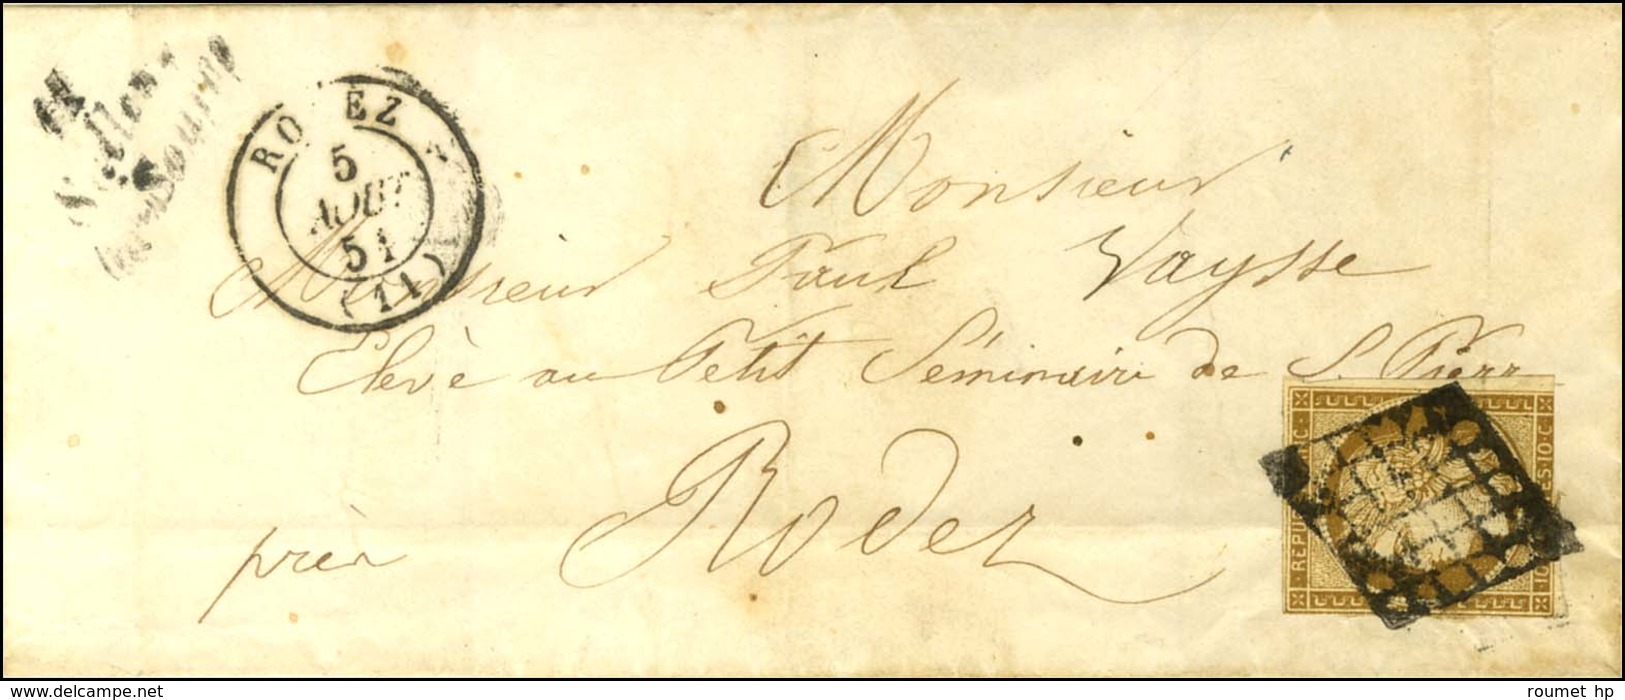 RODEZ
5
AOUT
51
(11)
Monsieur
Monsieur Paul Vaysse
Elève au Petit Séminaire de S. Pierr
près Rodez
REPUB FRANC
10 C
www.delcampe.net
roumet hp